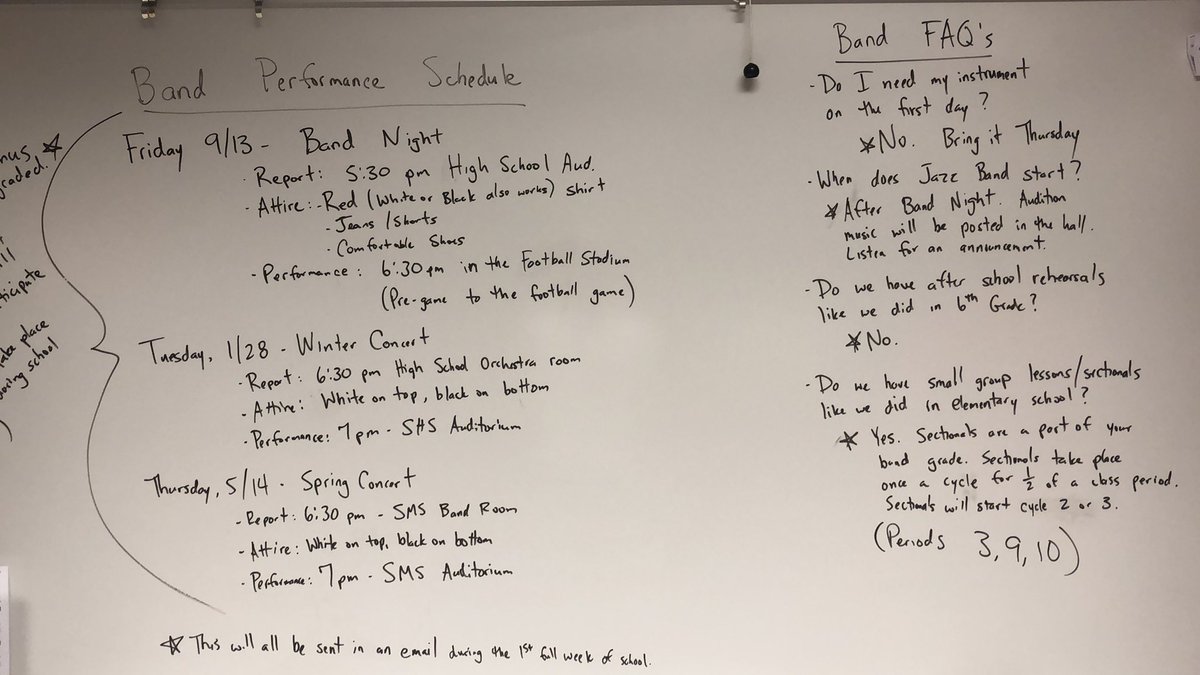 Band Performance Schedule
Friday 9/13 - Band Night
· Report: 5:30 pm High School Aud.
· Attire: - Red (White or Black also works) shirt
- Jeans/Shorts
· Comfortable Shoes
· Performance: 6:30 pm in the Football Stadium
(Pre-game to the football game)
Tuesday, 1/28 - Winter Concert
· Report: 6:30 pm High School Orchestra room
· Attire: White on top, black on bottom
· Performance: 7pm - SHS Auditorium
Thursday, 5/14 - Spring Concert
· Report: 6:30 pm - SMS Band Room
· Attire: White on top, black on bottom
· Performance: 7pm - SMS Auditorium
☆ This will all be sent in an email during the 1st full week of school.
Band FAQ's
· Do I need my instrument
on the first day?
☆ No. Bring it Thursday
· When does Jazz Band start?
☆ After Band Night. Audition
music will be posted in the hall.
Listen for an announcement.
· Do we have after school rehearsals
like we did in 6th Grade?
☆ No.
· Do we have small group lessons/sectionals
like we did in elementary school?
☆ Yes. Sectionals are a part of your
band grade. Sectionals take place
once a cycle for 1/2 of a class period.
Sectionals will start cycle 2 or 3.
(Periods 3, 9, 10)
graded.
take place
school